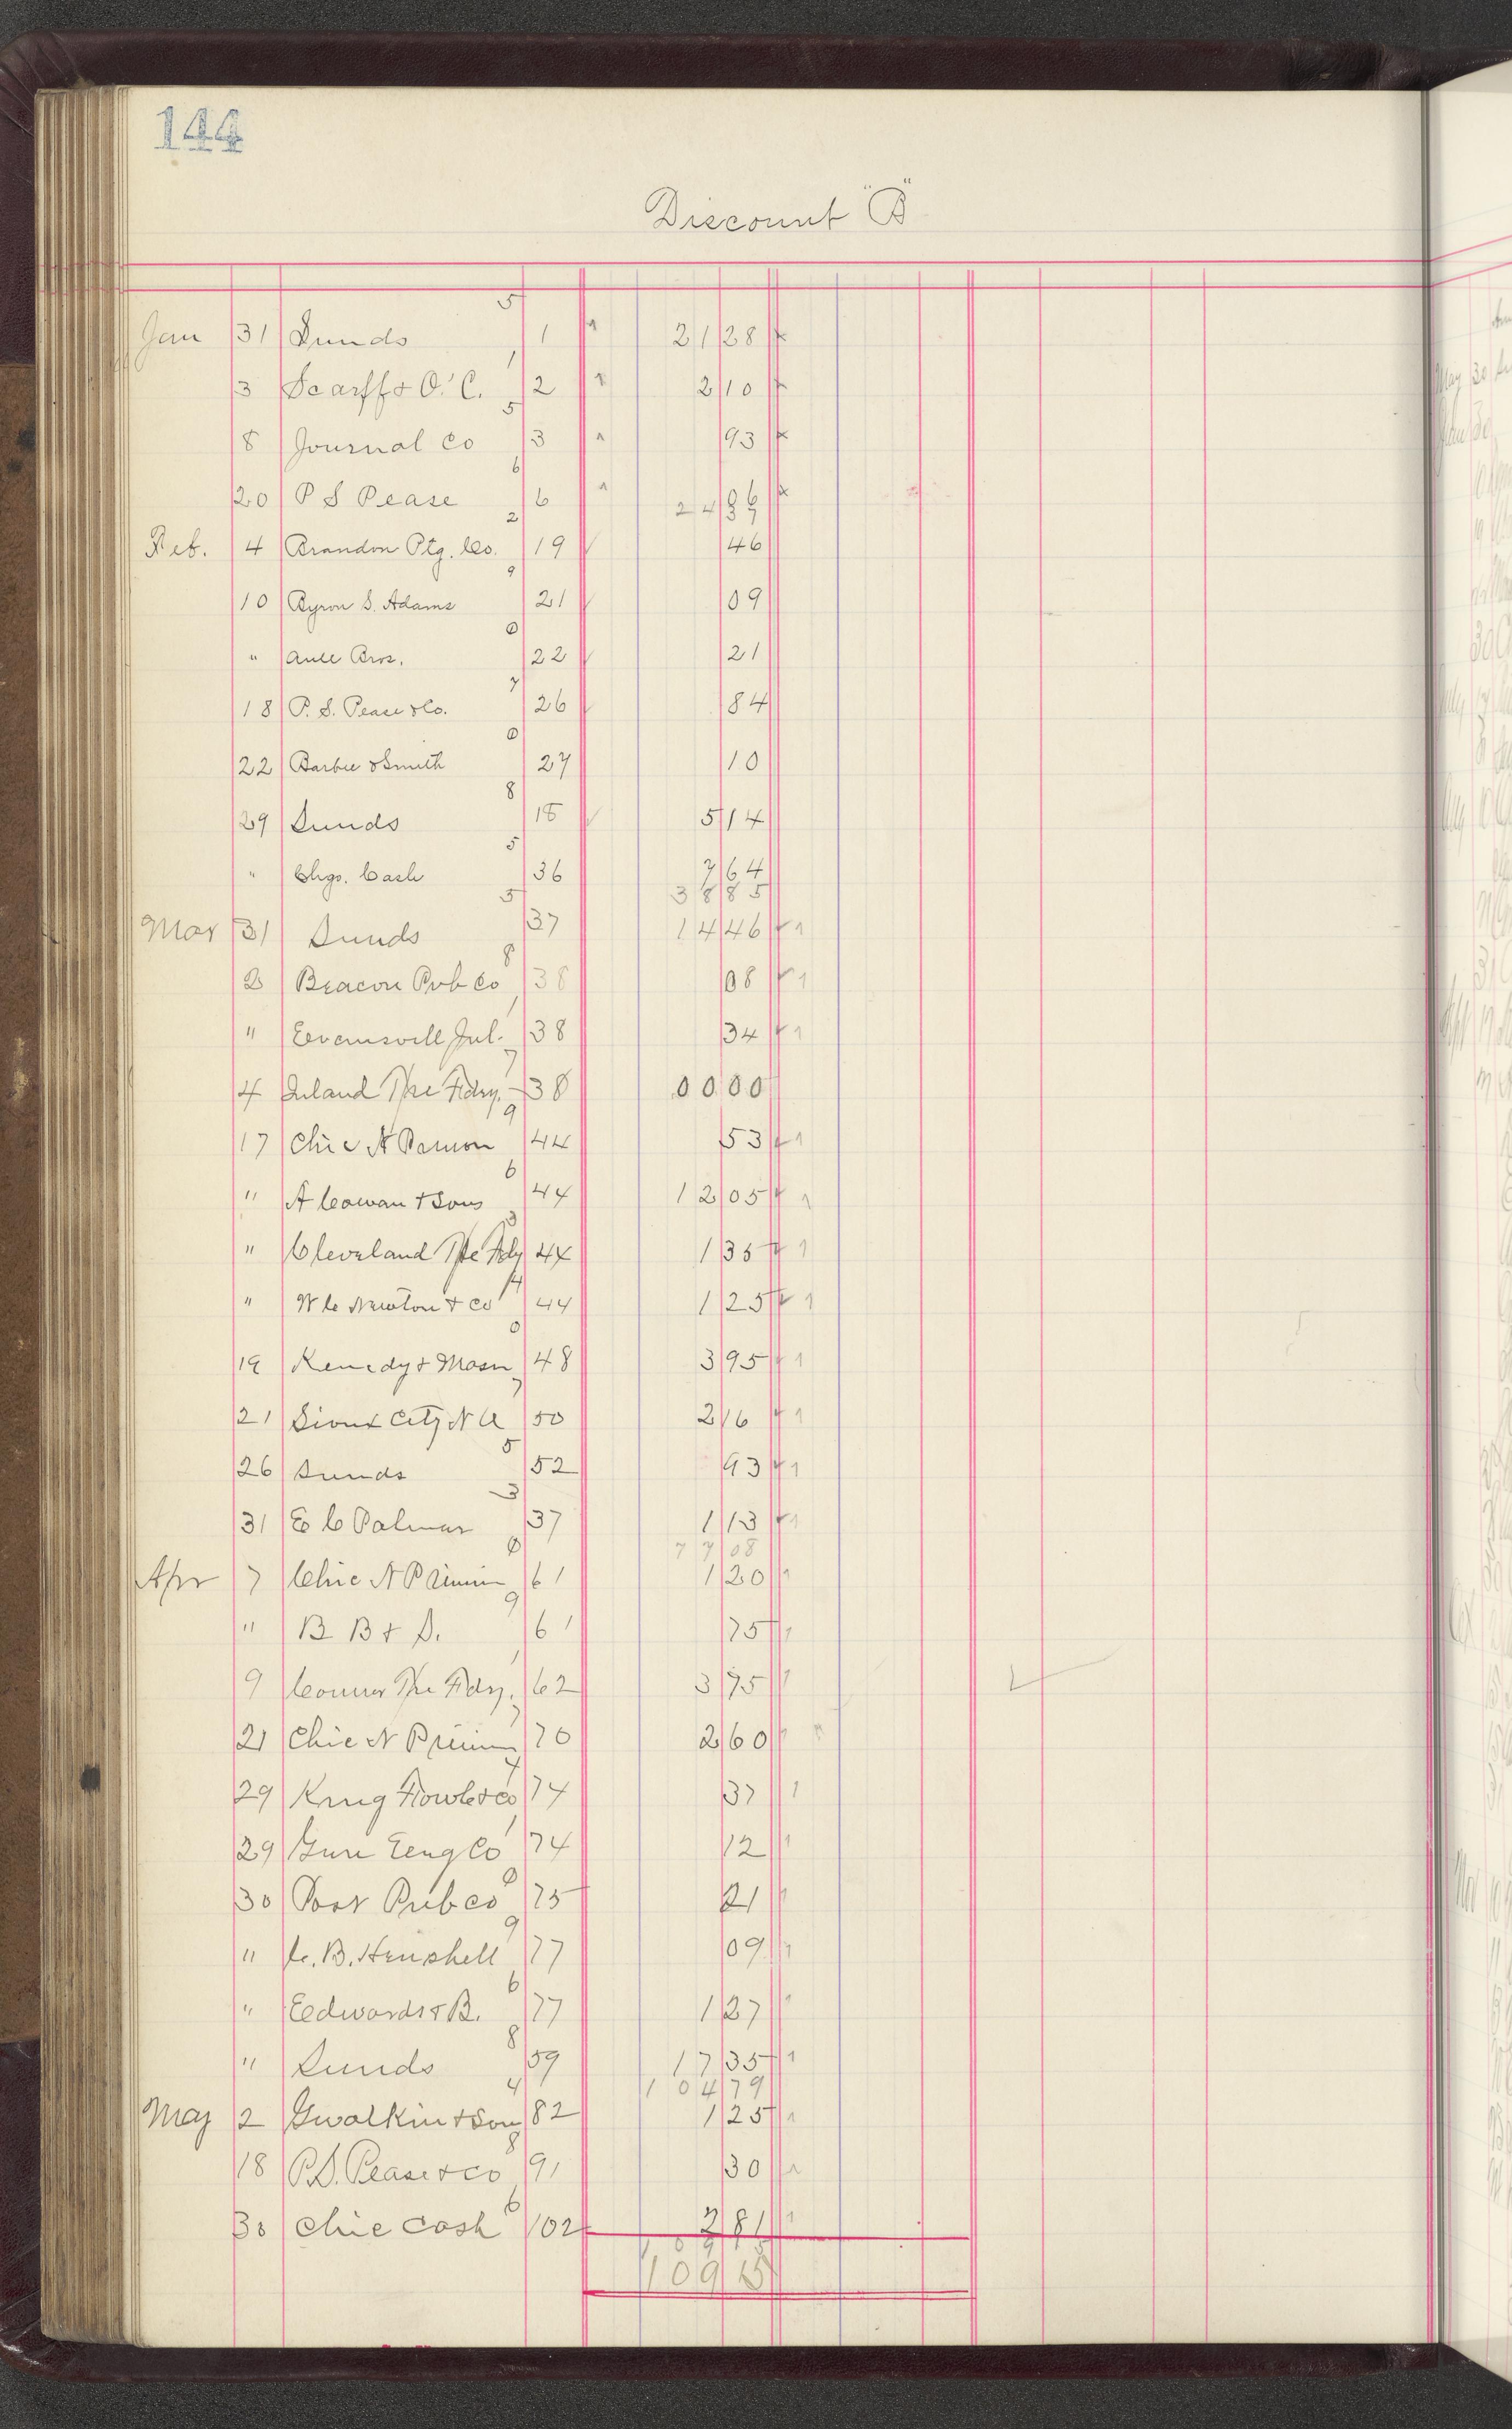 144
Discount "B"
Jan 31 Sunds 5 1 21 28
3 Scarff & O'C. 1 2 2 10
8 Journal Co 5 3 93
20 P S Pease 6 6
Feb. 4 Brandon Ptg. Co. 2 19 46
10 Byron S. Adams 9 21 09
" Ault Bros. 0 22 21
18 P. S. Pease & Co. 7 26 84
22 Barbee & Smith 0 27 10
29 Sunds 8 18 5 14
" Chgo. Cash 5 36 7 64
38 85
Mar 31 Sunds 5 37 14 46
2 Beacon Pub Co 8 38 08
" Evansvill Jul. 38 34
4 Inland Type Fdry. 7 38 00 00
17 Chic N 9 44 53
" A Cowan & Sons 6 44 12 05
" Cleveland Type Fdy 3 44 1 35
" W C Newton & Co 4 44 1 25
19 Kenedy & Mason 0 48 3 95
21 Sioux City N U 7 50 2 16
26 Sunds 5 52 93
31 E C Palmer 3 37 1 13
77 08
Apr 7 Chic N 0 61 1 20
" B B & S. 9 61 75
9 Conner Type Fdry. 1 62 3 75
21 Chic N 7 70 2 60
29 King Fowle & Co 4 74 37
29 Eng Co 1 74 12
30 Post Pub Co 0 75 21
" C. B. Henshell 9 77 09
" Edwards & B. 6 77 1 27
" Sunds 8 59 17 35
104 79
May 2 Gwalkin & Son 4 82 1 25
18 P.S. Pease & Co 8 91 30
30 Chic Cash 6 102 2 81
109 15